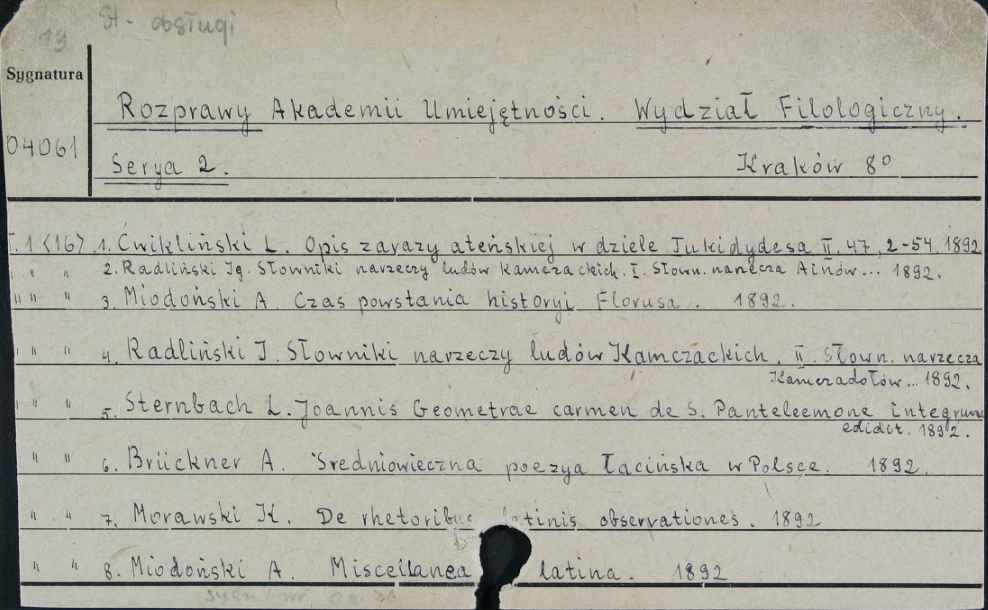 19 St. obsługi
Sygnatura
Rozprawy Akademii Umiejętności. Wydział Filologiczny.
04061
Serya 2. Kraków 8°
T. 1 <16> 1. Ćwikliński L. Opis zarazy ateńskiej w dziele Tukidydesa II. 47, 2-54. 1892
" " " 2. Radliński Ig. Słowniki narzeczy ludów kamczackich. I. Słown. narzecza Ainów... 1892.
" " " 3. Miodoński A. Czas powstania historyi Florusa. 1892.
" " " 4. Radliński I. Słowniki narzeczy ludów Kamczackich. II. Słown. narzecza
Kamczadołów... 1892.
" " " 5. Sternbach L. Joannis Geometrae carmen de S. Panteleemone integrum
edidit. 1892.
" " 6. Brückner A. Średniowieczna poezya łacińska w Polsce. 1892.
" " 7. Morawski K. De rhetoribus latinis observationes. 1892
" " 8. Miodoński A. Miscellanea latina. 1892